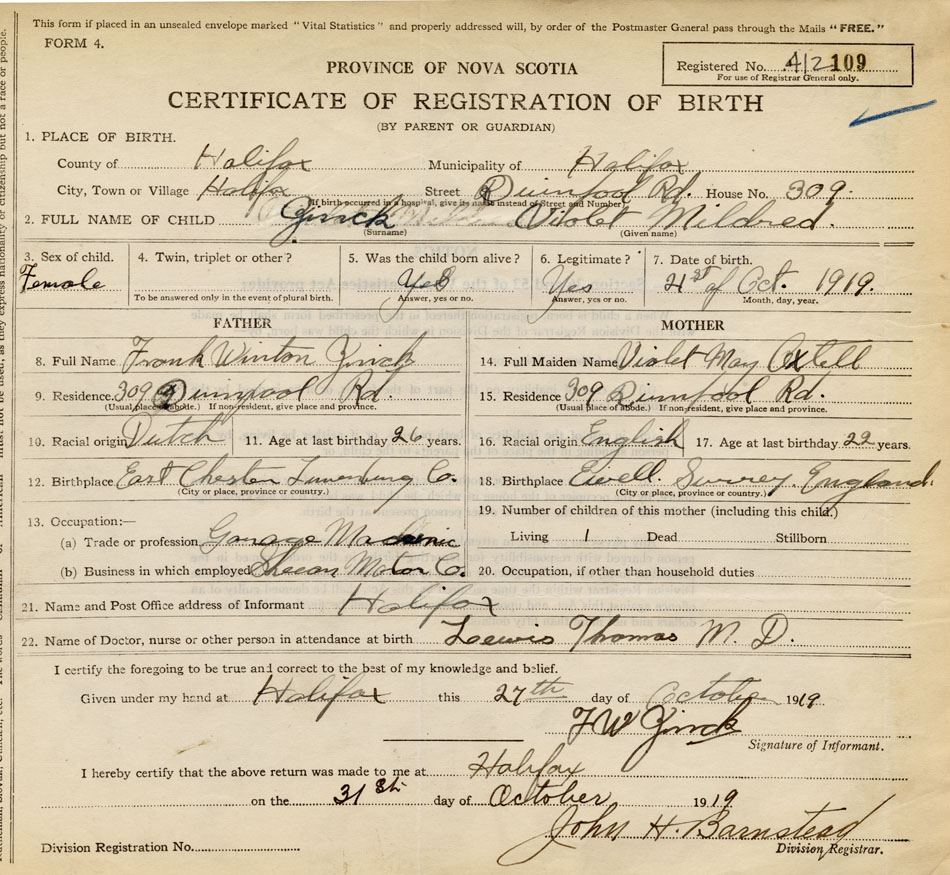 This form if placed in an unsealed envelope marked "Vital Statistics" and properly addressed will, by order of the Postmaster General pass through the Mails "FREE."
FORM 4.
Registered No. 412 109
For use of Registrar General only.
PROVINCE OF NOVA SCOTIA
CERTIFICATE OF REGISTRATION OF BIRTH
(BY PARENT OR GUARDIAN)
1. PLACE OF BIRTH.
County of Halifax Municipality of Halifax
City, Town or Village Halifax Street Rd. House No. 309.
(If birth occurred in a hospital, give its name instead of Street and Number)
2. FULL NAME OF CHILD Zinck Violet Mildred.
(Surname) (Given name)
3. Sex of child. 4. Twin, triplet or other? 5. Was the child born alive? 6. Legitimate? 7. Date of birth.
Female Yes Yes 21st of Oct. 1919.
To be answered only in the event of plural birth. Answer, yes or no. Answer, yes or no. Month, day, year.
FATHER MOTHER
8. Full Name Frank Winton Zinck 14. Full Maiden Name Violet May Axtell
9. Residence. 309 Rd. 15. Residence 309 Rd.
(Usual place of abode.) If non-resident, give place and province. (Usual place of abode.) If non-resident, give place and province.
10. Racial origin Dutch 11. Age at last birthday 26 years. 16. Racial origin English 17. Age at last birthday 22 years.
12. Birthplace East Chester Lunenburg Co. 18. Birthplace Ewell. Surrey. England.
(City or place, province or country.) (City or place, province or country.)
13. Occupation:— 19. Number of children of this mother (including this child.)
(a) Trade or profession Garage Machenic Living 1 Dead Stillborn
(b) Business in which employed Motor Co. 20. Occupation, if other than household duties
21. Name and Post Office address of Informant Halifax
22. Name of Doctor, nurse or other person in attendance at birth. Lewis Thomas M. D.
I certify the foregoing to be true and correct to the best of my knowledge and belief.
Given under my hand at Halifax this 27th day of October 1919
F W Zinck
Signature of Informant.
I hereby certify that the above return was made to me at Halifax
on the 31st day of October 1919
John H. Barnstead
Division Registrar.
Division Registration No.